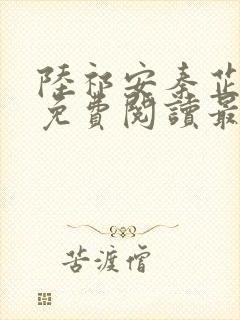 陸祁安秦芷
免費閱讀最
苦渡僧